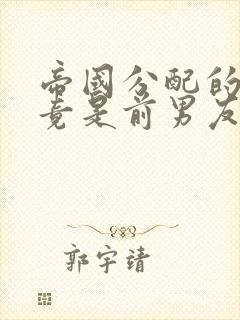 帝國分配的
竟是前男友
郭宇靖